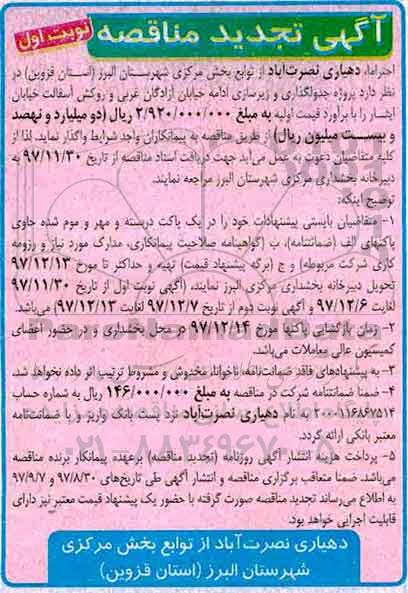 آگهی تجدید مناقصه
نوبت اول
احتراما، دهیاری نصرت‌آباد از توابع بخش مرکزی شهرستان البرز (استان قزوین) در
نظر دارد پروژه جدولگذاری و زیرسازی ادامه خیابان آزادگان غربی و روکش آسفالت خیابان
ایثار را با برآورد قیمت اولیه به مبلغ ۲/۹۲۰/۰۰۰/۰۰۰ ریال (دو میلیارد و نهصد
و بیست میلیون ریال) از طریق مناقصه به پیمانکاران واجد شرایط واگذار نماید. لذا از
کلیه متقاضیان دعوت به عمل می‌آید جهت دریافت اسناد مناقصه از تاریخ ۹۷/۱۱/۳۰ به
دبیرخانه بخشداری مرکزی شهرستان البرز مراجعه نمایند.
توضیح اینکه:
۱- متقاضیان بایستی پیشنهادات خود را در یک پاکت دربسته و مهر و موم شده حاوی
پاکتهای الف (ضمانتنامه)، ب (گواهینامه صلاحیت پیمانکاری، مدارک مورد نیاز و رزومه
کاری شرکت مربوطه) و ج (برگه پیشنهاد قیمت) تهیه و حداکثر تا مورخ ۹۷/۱۲/۱۳
تحویل دبیرخانه بخشداری مرکزی البرز نمایند. (آگهی نوبت اول از تاریخ ۹۷/۱۱/۳۰
لغایت ۹۷/۱۲/۶ و آگهی نوبت دوم از تاریخ ۹۷/۱۲/۷ لغایت ۹۷/۱۲/۱۳) می‌باشد.
۲- زمان بازگشایی پاکتها مورخ ۹۷/۱۲/۱۴ در محل بخشداری و در حضور اعضای
کمیسیون عالی معاملات می‌باشد.
۳- به پیشنهادهای فاقد ضمانت‌نامه، ناخوانا، مخدوش و مشروط ترتیب اثر داده نخواهد شد.
۴- ضمنا ضمانتنامه شرکت در مناقصه به مبلغ ۱۴۶/۰۰۰/۰۰۰ ریال به شماره حساب
۲۰۰۱۱۶۸۶۷۵۱۴ به نام دهیاری نصرت‌آباد نزد پست بانک واریز و یا ضمانت‌نامه
معتبر بانکی ارائه گردد.
۵- پرداخت هزینه انتشار آگهی روزنامه (تجدید مناقصه) برعهده پیمانکار برنده مناقصه
می‌باشد. ضمنا متعاقب برگزاری مناقصه و انتشار آگهی طی تاریخ‌های ۹۷/۸/۳۰ و ۹۷/۹/۷
به اطلاع می‌رساند تجدید مناقصه صورت گرفته با حضور یک پیشنهاد قیمت معتبر نیز دارای
قابلیت اجرایی خواهد بود.
دهیاری نصرت‌آباد از توابع بخش مرکزی
شهرستان البرز (استان قزوین)